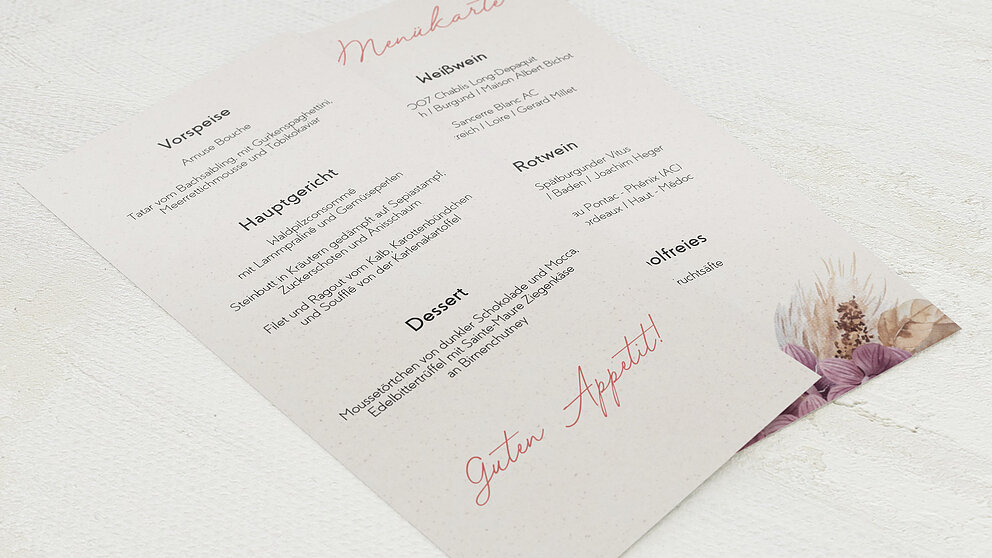 Menükarte
Vorspeise
Amuse Bouche
Tatar vom Bachsaibling, mit Gurkenspaghettini,
Meerrettichmousse und Tobikokaviar
Hauptgericht
Waldpilzconsommé
mit Lammpraliné und Gemüseperlen
Steinbutt in Kräutern gedämpft auf Sepiastampf,
Zuckerschoten und Anisschaum
Filet und Ragout vom Kalb, Karottenbündchen
und Soufflé von der Karlenakartoffel
Dessert
Moussetörtchen von dunkler Schokolade und Mocca,
Edelbittertrüffel mit Sainte-Maure Ziegenkäse
an Birnenchutney
Guten Appetit!
Weißwein
007 Chablis Long-Depaquit
h / Burgund / Maison Albert Bichot
Sancerre Blanc AC
reich / Loire / Gerard Millet
Rotwein
Spätburgunder Vitus
/ Baden / Joachim Heger
au Pontac - Phênix (AC)
rdeaux / Haut - Médoc
olfreies
ruchtsäfte